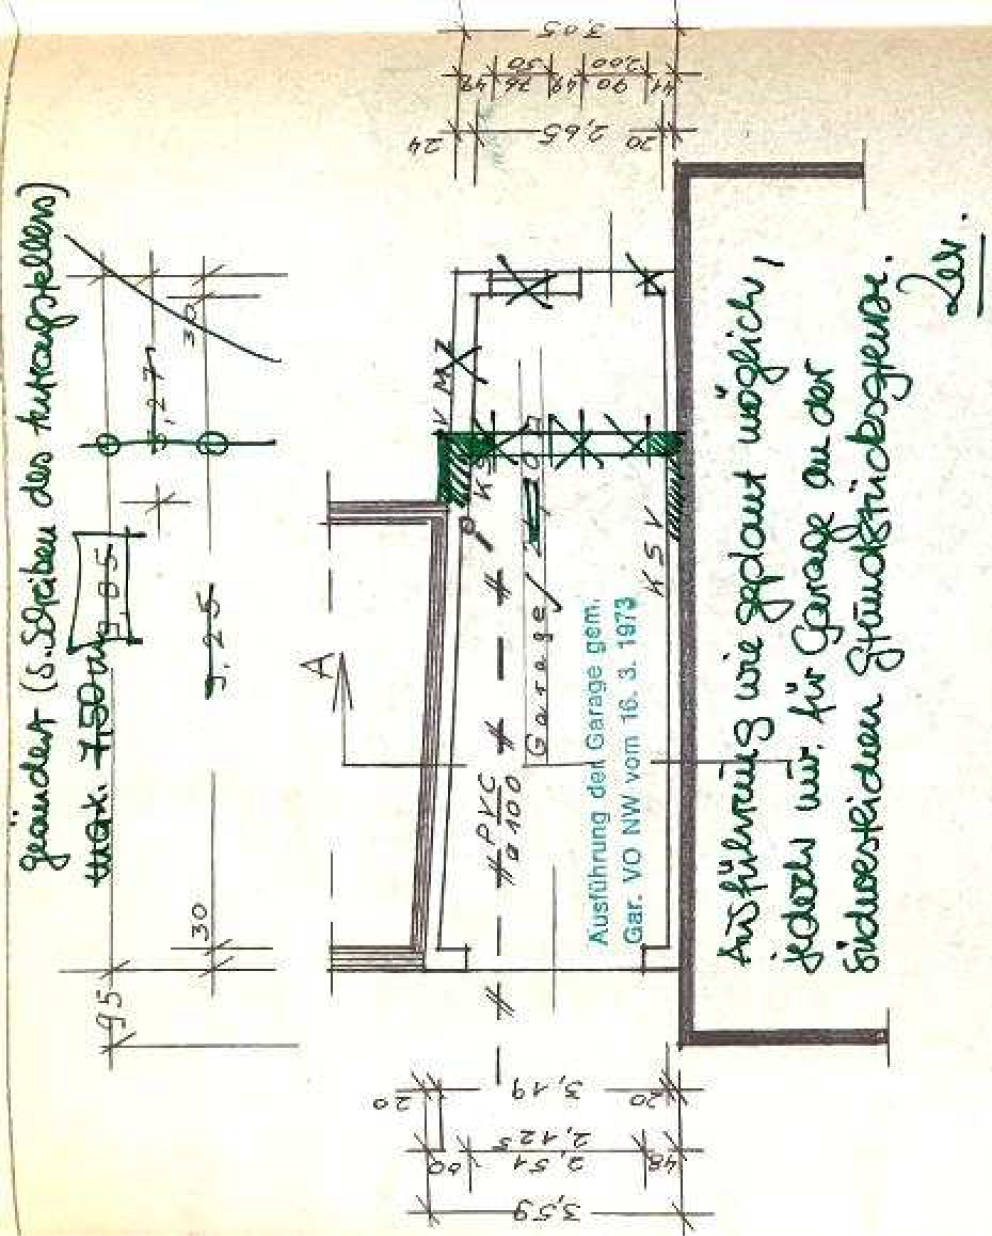 geändert (s. Schreiben des Antragstellers)
max. 7,50 m
9,05
3,27
30
9,25
30
95
A
PVC
ø 100
Garage
KSV
Ausführung der Garage gem.
Gar. VO NW vom 16. 3. 1973
Ausführung wie geplant möglich,
jedoch nur für Garage an der
südwestlichen Grundstücksgrenze.
3,05
49 76 49 90 41
50 2,00
24 2,65 20
20 3,19 20
60 2,51 48
2,125
3,59